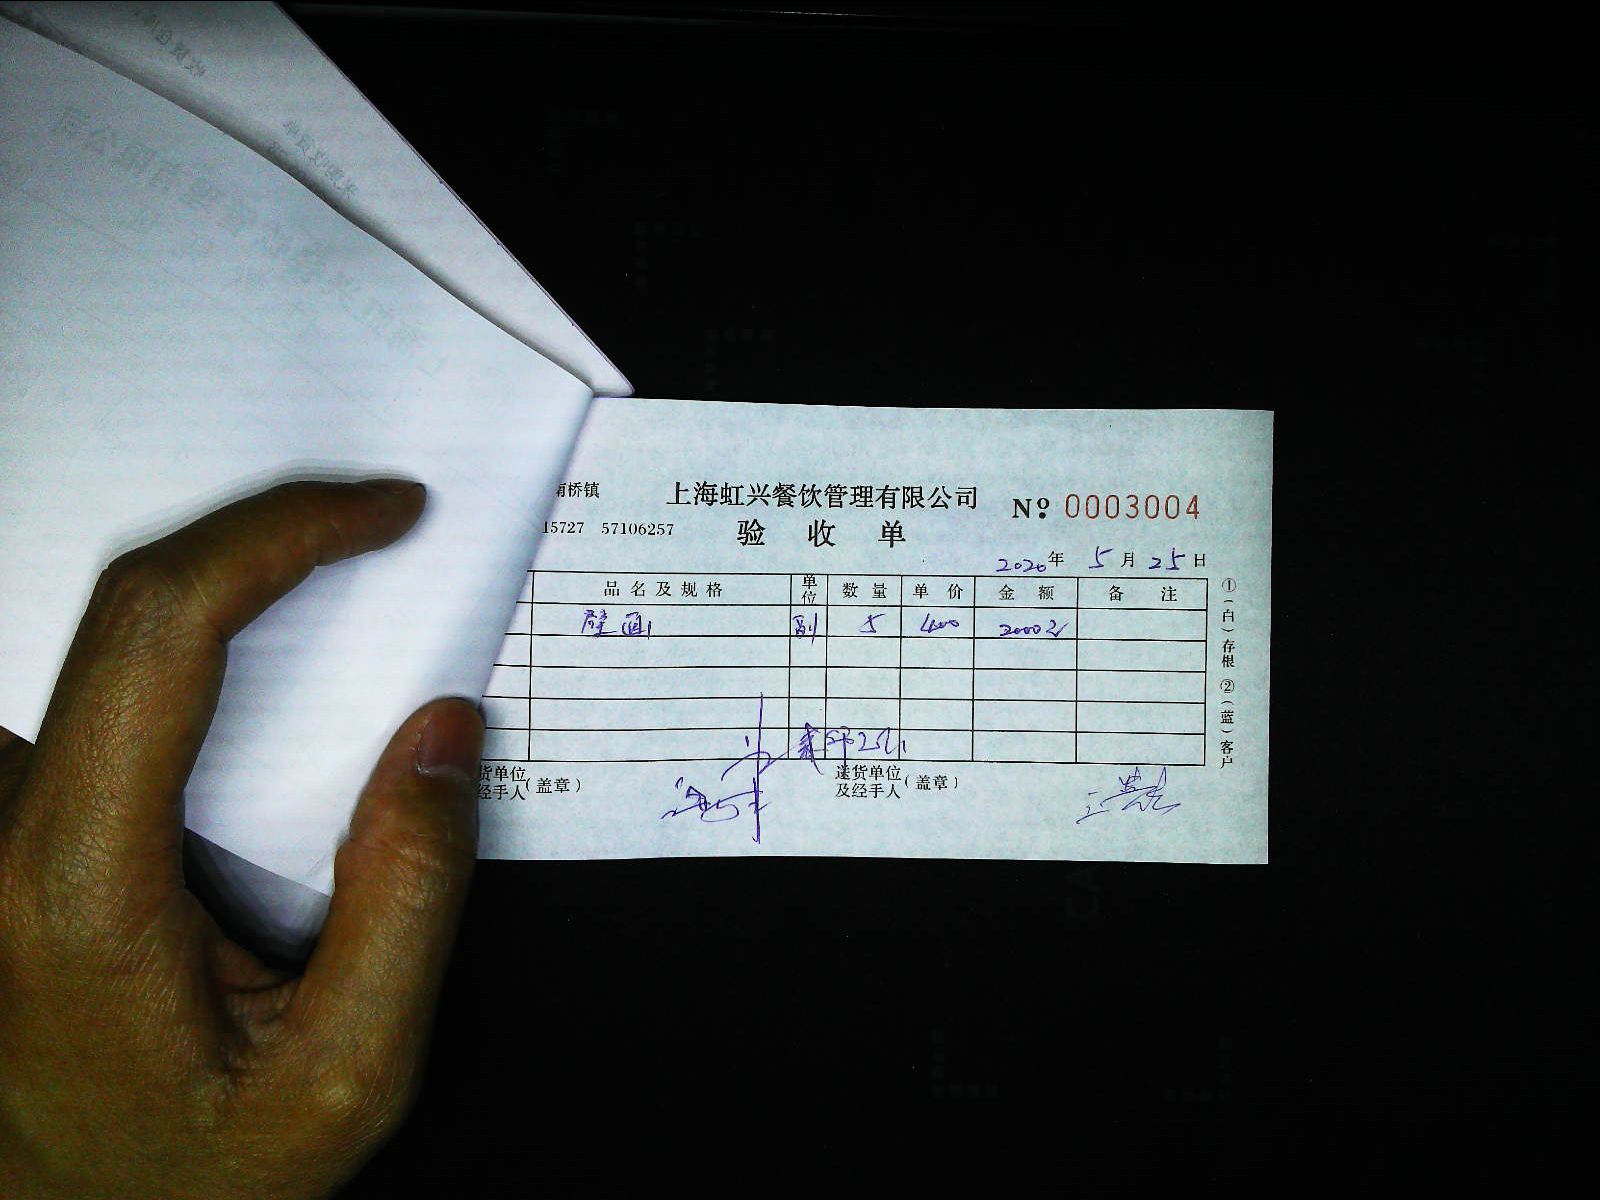 南桥镇 上海虹兴餐饮管理有限公司 № 0003004
15727 57106257 验 收 单
2020年 5月25日
品名及规格 单位 数量 单价 金额 备注
壁画 副 5 400 2000元
货单位经手人(盖章) 送货单位及经手人(盖章)
①(白)存根 ②(蓝)客户